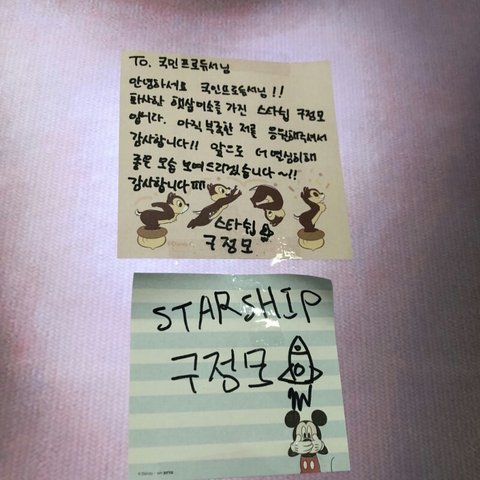 To. 국민프로듀서님
안녕하서요 국민프로듀서님!!
화사한 햇살미소를 가진 스타쉽 구정모
입니다. 아직 부족한 저를 응원해주셔서
감사합니다!! 앞으로 더 열심히해
좋은 모습 보여드리겠습니다~!!
감사합니다!!!!
스타쉽
구정모
©Disney
STARSHIP
구정모
©Disney